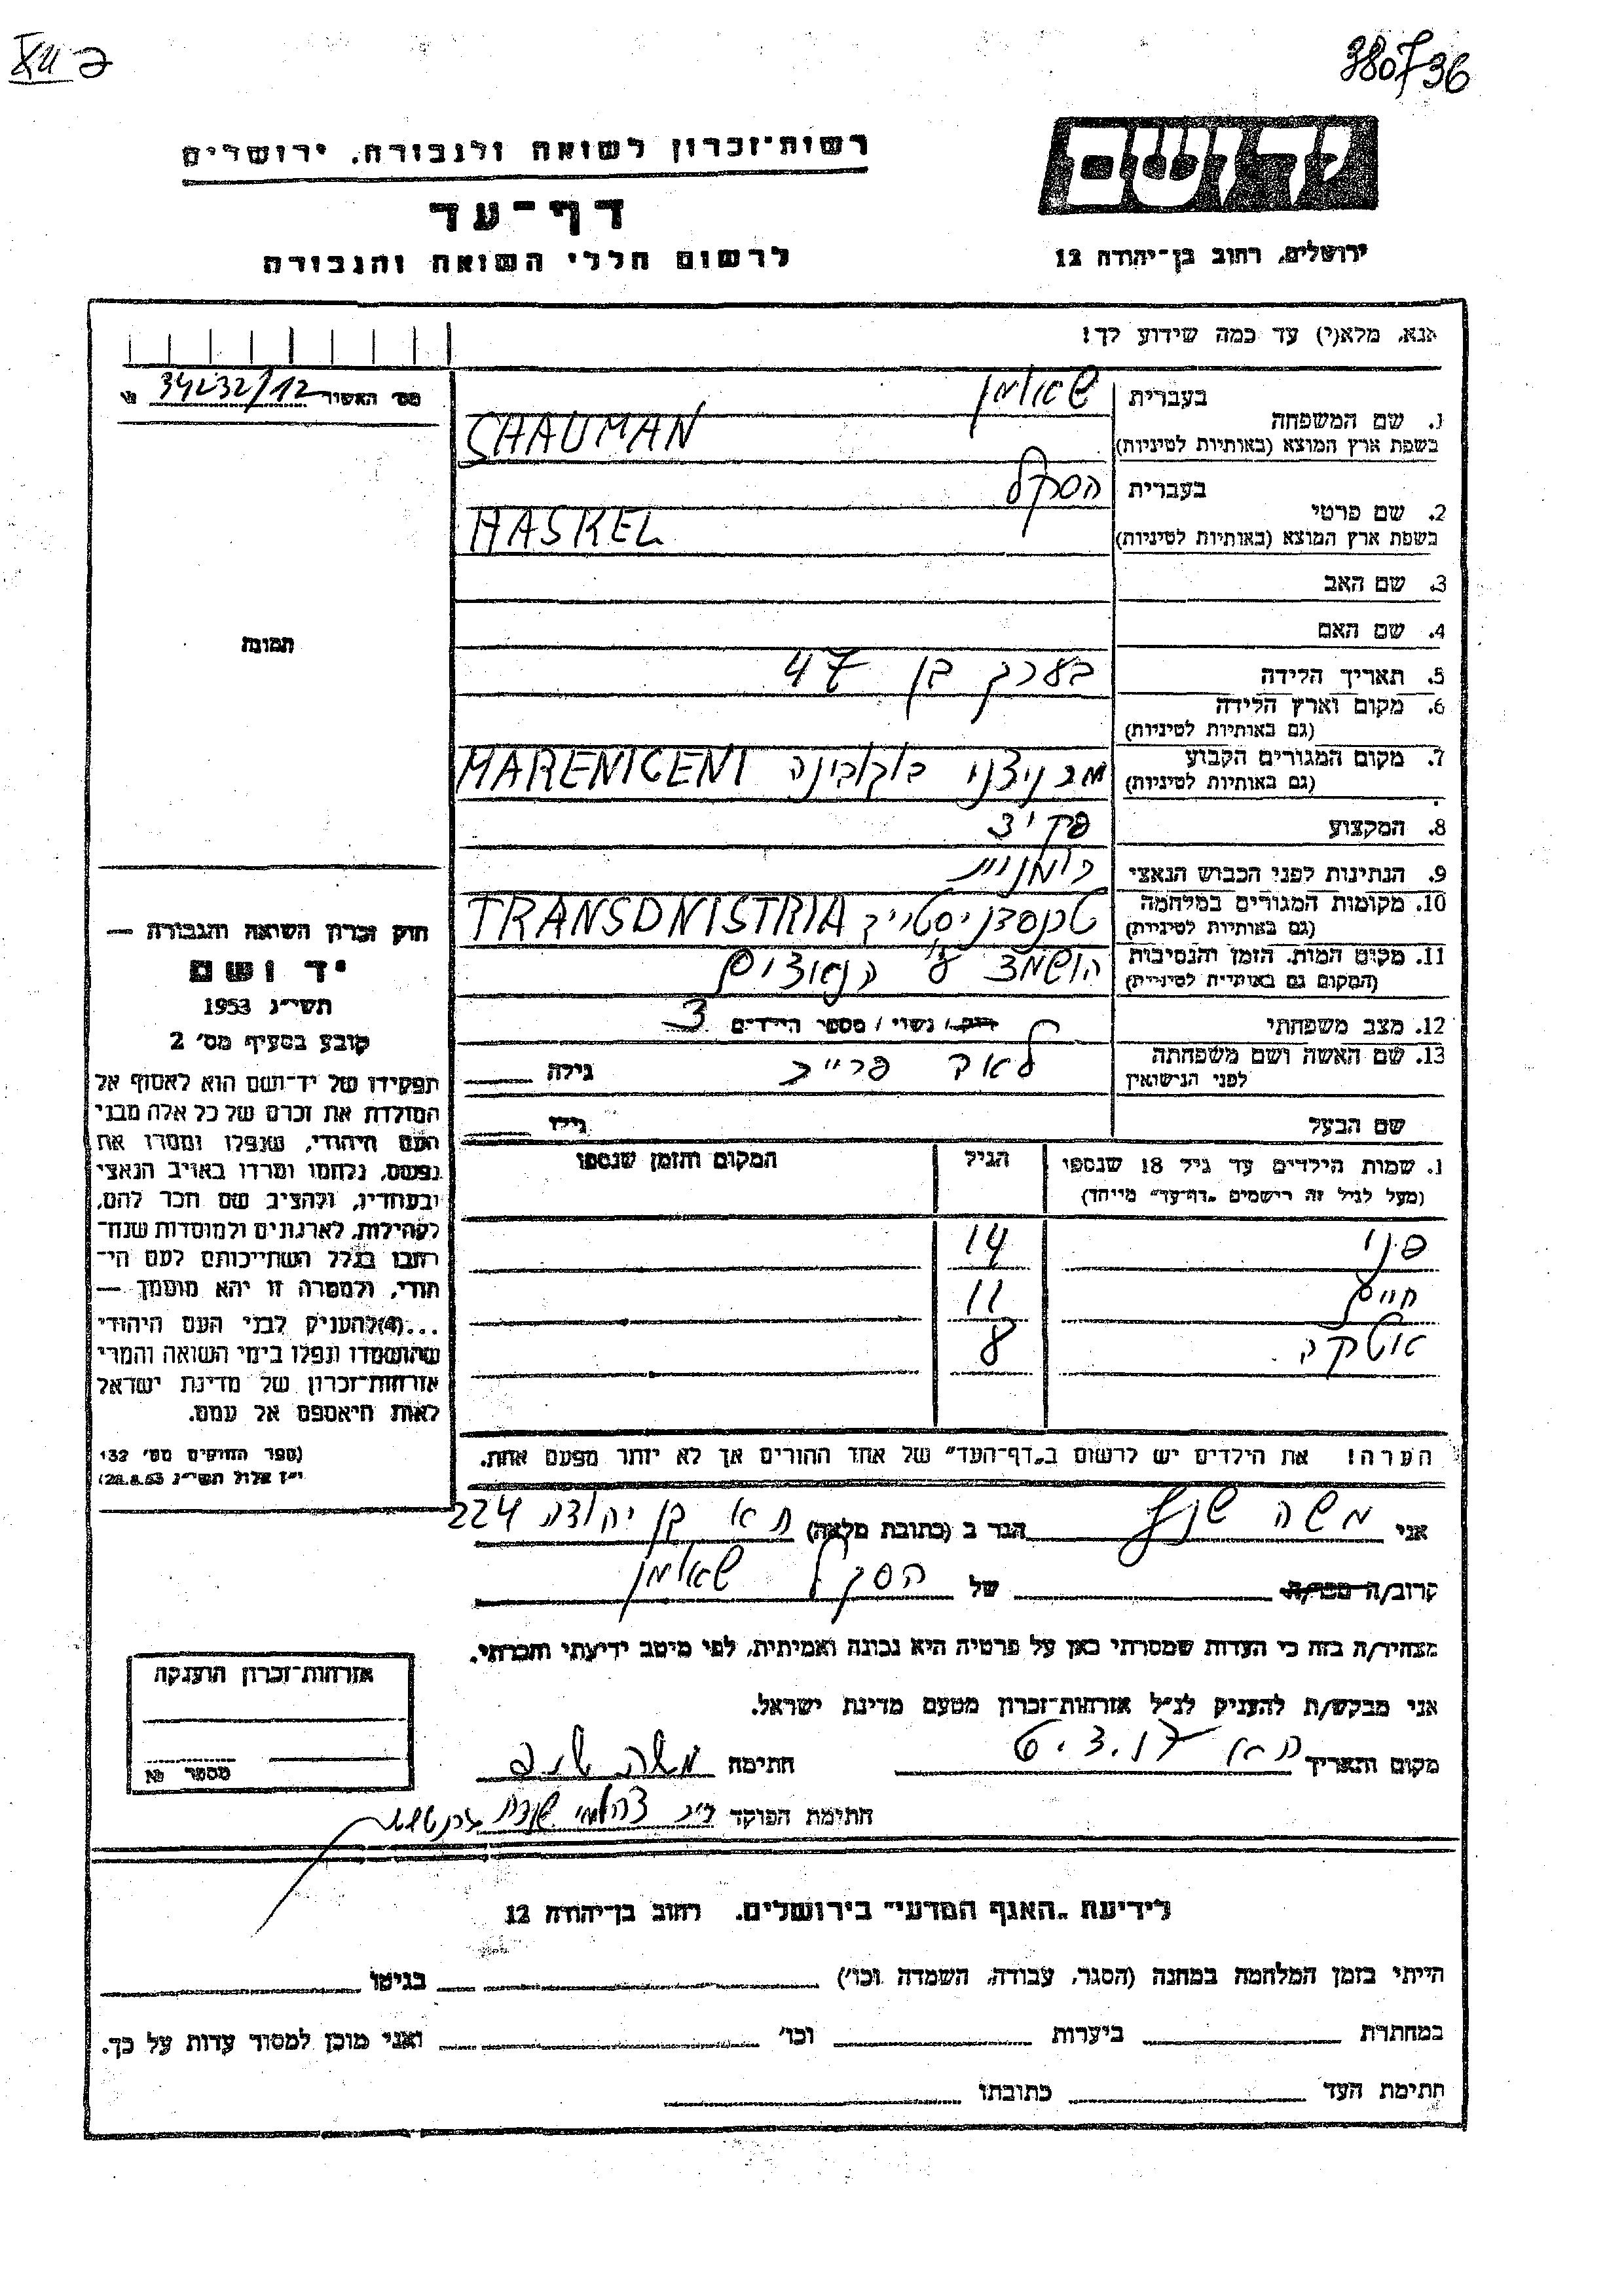 380736
רשות־זכרון לשואה ולגבורה, ירושלים
דף־עד
לרשום חללי השואה והגבורה
ידושם
ירושלים, רחוב בן־יהודה 12
אנא, מלא(י) עד כמה שידוע לך!
מס׳ האשיור 34232/12
1. שם המשפחה
בעברית שאומן
בשפת ארץ המוצא (באותיות לטיניות) SHAUMAN
2. שם פרטי
בעברית הסקל
בשפת ארץ המוצא (באותיות לטיניות) HASKEL
3. שם האב
4. שם האם
5. תאריך הלידה בערך בן 47
6. מקום וארץ הלידה
(גם באותיות לטיניות)
7. מקום המגורים הקבוע
(גם באותיות לטיניות) מרניצני בוקובינה MARENICENI
8. המקצוע פקיד
9. הנתינות לפני הכבוש הנאצי רומנית
10. מקומות המגורים במלחמה
(גם באותיות לטיניות) TRANSDNISTRIA
11. מקום המות, הזמן והנסיבות
(המקום גם באותיות לטיניות) הושמד ע״י הנאצים
12. מצב משפחתי רווק / נשוי / מספר הילדים 3
13. שם האשה ושם משפחתה
לפני הנישואין לאה פרייב גילה
שם הבעל גילו
1. שמות הילדים עד גיל 18 שנספו הגיל המקום והזמן שנספו
(מעל לגיל זה רישמים „דף־עד״ מייחד)
פני 14
חיים 11
אטקה 8
הערה! את הילדים יש לרשום ב„דף־העד״ של אחד ההורים אך לא יותר מפעם אחת.
תמונה
חוק זכרון השואה והגבורה —
יד ושם
תשי״ג 1953
קובע בסעיף מס׳ 2
תפקידו של יד־ושם הוא לאסוף אל
המולדת את זכרם של כל אלה מבני
העם היהודי, שנפלו ומסרו את
נפשם, נלחמו ומרדו באויב הנאצי
ובעוזריו, ולהציב שם וזכר להם,
לקהילות, לארגונים ולמוסדות שנח־
רבו בגלל השתייכותם לעם הי־
הודי, ולמטרה זו יהא מוסמך —
...(4)להעניק לבני העם היהודי
שהושמדו ונפלו בימי השואה והמרי
אזרחות־זכרון של מדינת ישראל
לאות היאספם אל עמם.
(ספר החוקים מס׳ 132
י״ז אלול תשי״ג 28.8.53)
אני משה הגר ב (כתובת מלאה) ת״א בן יהודה 224
קרוב/ה מכר/ה של הסקל שאומן
מצהיר/ה בזה כי העדות שמסרתי כאן על פרטיה היא נכונה ואמיתית, לפי מיטב ידיעתי והכרתי.
אני מבקש/ת להעניק לנ״ל אזרחות־זכרון מטעם מדינת ישראל.
מקום ותאריך ת״א חתימה משה
חתימת הפוקד
אזרחות־זכרון הוענקה
מספר №
לידיעת „האגף המדעי״ בירושלים, רחוב בן־יהודה 12
הייתי בזמן המלחמה במחנה (הסגר, עבודה, השמדה וכו׳) בגיטו
במחתרת ביערות וכו׳ ואני מוכן למסור עדות על כך.
חתימת העד כתובתו